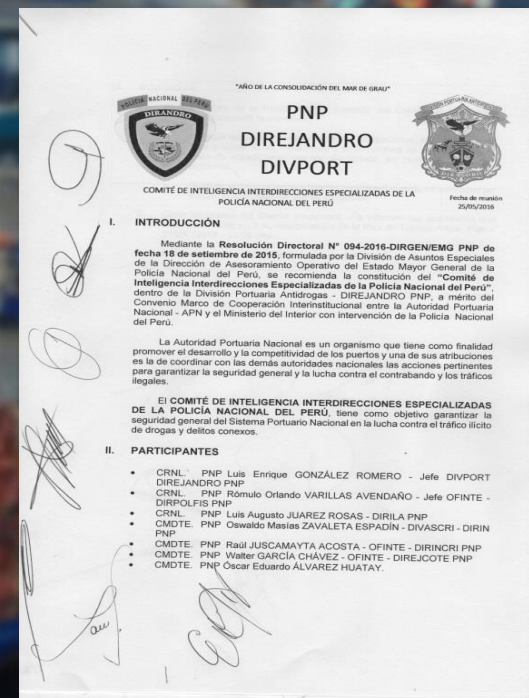 "AÑO DE LA CONSOLIDACIÓN DEL MAR DE GRAU"
POLICIA NACIONAL DEL PERÚ
DIRANDRO
PNP
DIREJANDRO
DIVPORT
COMITÉ DE INTELIGENCIA INTERDIRECCIONES ESPECIALIZADAS DE LA
POLICÍA NACIONAL DEL PERÚ
Fecha de reunión
25/05/2016
I. INTRODUCCIÓN
Mediante la Resolución Directoral N° 094-2016-DIRGEN/EMG PNP de
fecha 18 de setiembre de 2015, formulada por la División de Asuntos Especiales
de la Dirección de Asesoramiento Operativo del Estado Mayor General de la
Policía Nacional del Perú, se recomienda la constitución del "Comité de
Inteligencia Interdirecciones Especializadas de la Policía Nacional del Perú",
dentro de la División Portuaria Antidrogas - DIREJANDRO PNP, a mérito del
Convenio Marco de Cooperación Interinstitucional entre la Autoridad Portuaria
Nacional - APN y el Ministerio del Interior con intervención de la Policía Nacional
del Perú.
La Autoridad Portuaria Nacional es un organismo que tiene como finalidad
promover el desarrollo y la competitividad de los puertos y una de sus atribuciones
es la de coordinar con las demás autoridades nacionales las acciones pertinentes
para garantizar la seguridad general y la lucha contra el contrabando y los tráficos
ilegales.
El COMITÉ DE INTELIGENCIA INTERDIRECCIONES ESPECIALIZADAS
DE LA POLICÍA NACIONAL DEL PERÚ, tiene como objetivo garantizar la
seguridad general del Sistema Portuario Nacional en la lucha contra el tráfico ilícito
de drogas y delitos conexos.
II. PARTICIPANTES
• CRNL. PNP Luis Enrique GONZÁLEZ ROMERO - Jefe DIVPORT
DIREJANDRO PNP
• CRNL. PNP Rómulo Orlando VARILLAS AVENDAÑO - Jefe OFINTE -
DIRPOLFIS PNP
• CRNL. PNP Luis Augusto JUAREZ ROSAS - DIRILA PNP
• CMDTE. PNP Oswaldo Masías ZAVALETA ESPADÍN - DIVASCRI - DIRIN
PNP
• CMDTE. PNP Raúl JUSCAMAYTA ACOSTA - OFINTE - DIRINCRI PNP
• CMDTE. PNP Walter GARCÍA CHÁVEZ - OFINTE - DIREJCOTE PNP
• CMDTE. PNP Óscar Eduardo ÁLVAREZ HUATAY.